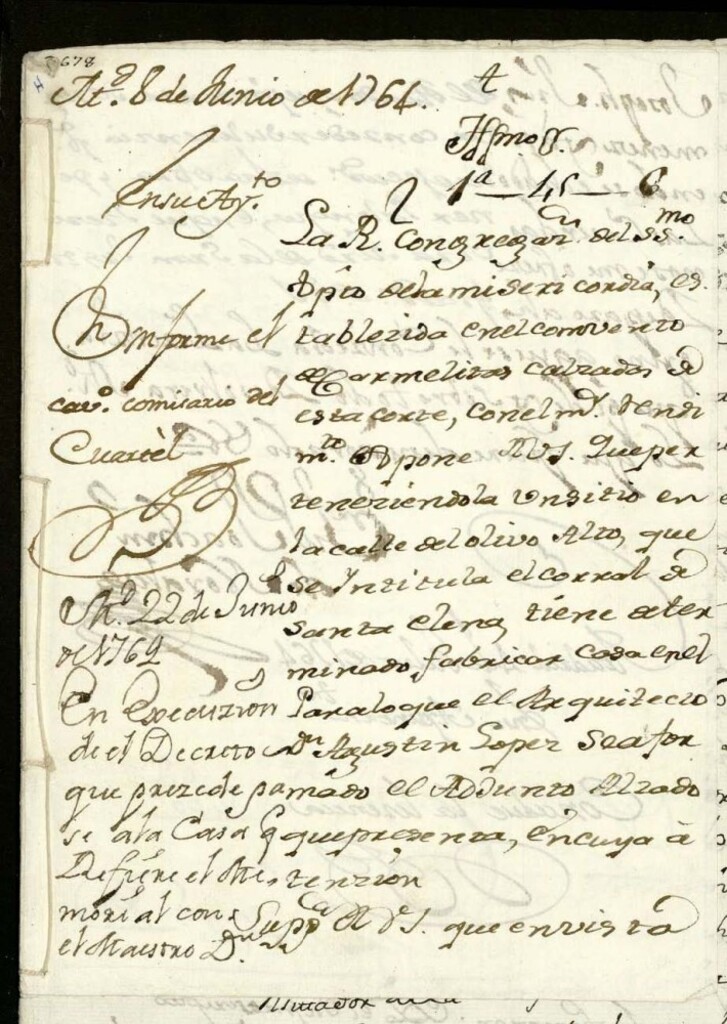 678
Md. 8 de Junio de 1764.
Illmo Sr.
1a - 45 - 6
En su Ayto.
La Rl. Congregaon. del SSmo
Xpto de la misericordia, es
tablezida en el comvento
de Carmelitas calzados de
esta corte, con el mr. Rendi
mto. expone a V.S.I. que per
teneziendola un sitio en
la calle del olivo Alto, que
se Yntitula el corral de
santa elena, tiene deter
minado, fabricar casa en el
Para lo que el Arquitecto
Dn Agustin Lopez se a for
mado el Adjunto Alzado
que presenta, en cuya a
tenzion
Suppca A V.S.I. que en vista
Informe el
cavo. comisario del
Cuartel
Md. 22 de Junio
de 1764
En Execuzion
de el Decreto
que prezede pa
se a la Casa q
Refiere el Me,
morial con
el Maestro Dn.